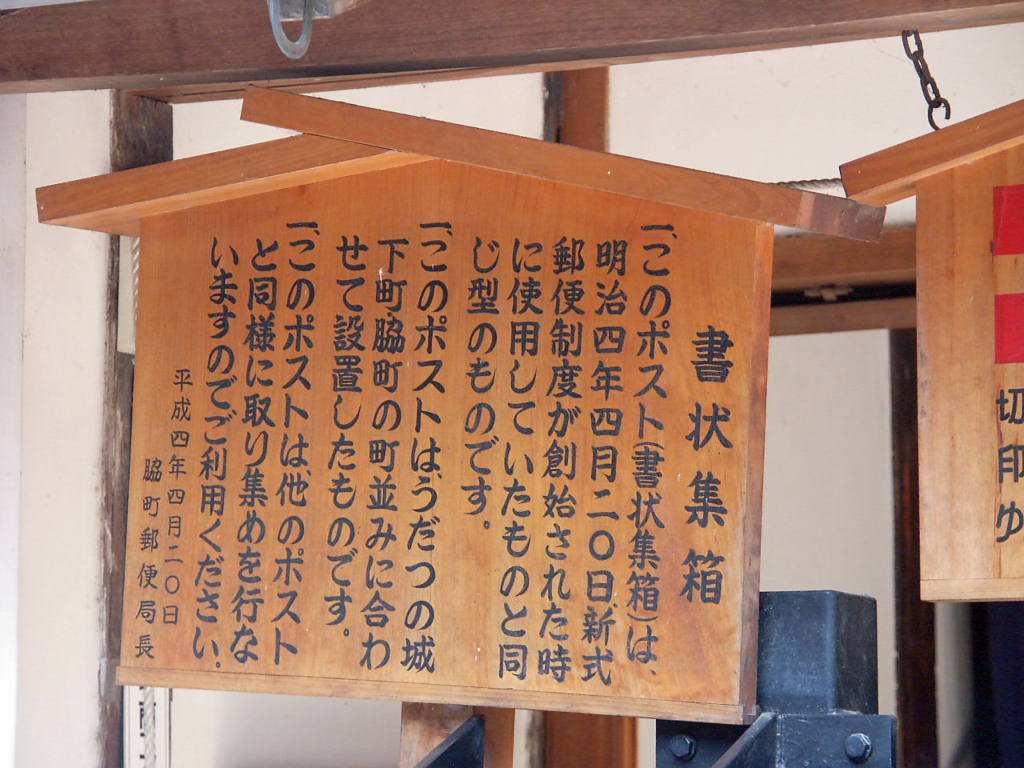 書状集箱
一、このポスト(書状集箱)は、
明治四年四月二〇日新式
郵便制度が創始された時
に使用していたものと同
じ型のものです。
一、このポストは、うだつの城
下町脇町の町並みに合わ
せて設置したものです。
一、このポストは、他のポスト
と同様に取り集めを行な
いますのでご利用ください。
平成四年四月二〇日
脇町郵便局長
切
印
ゆ